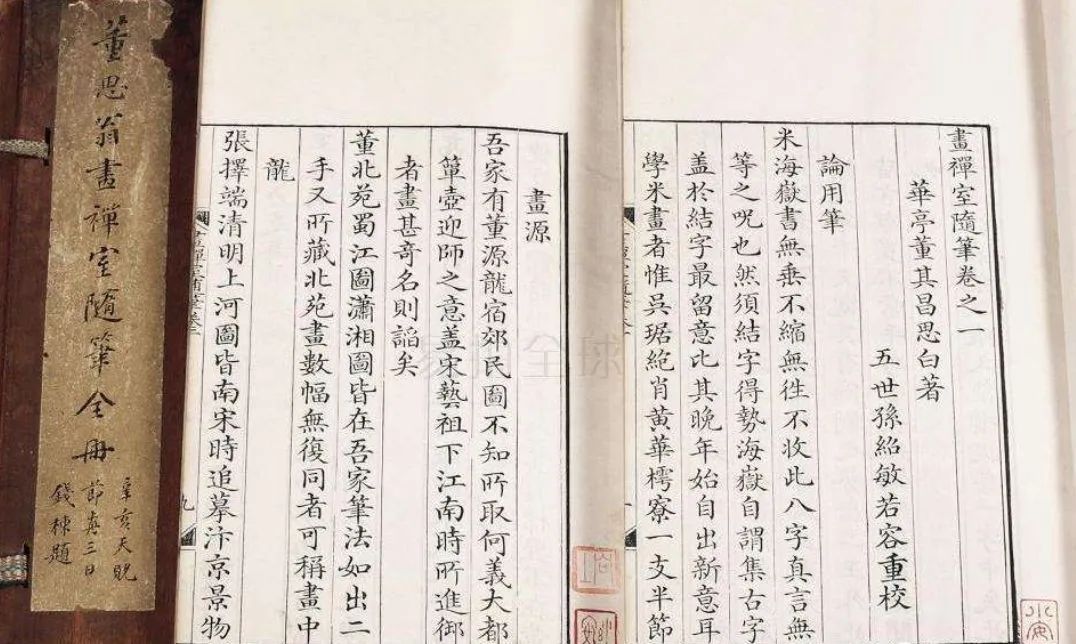 董思翁畫禪室隨筆全冊
辛亥天貺
節三日
錢棟題
畫禪室隨筆卷之一
華亭董其昌思白著
五世孫紹敏若容重校
論用筆
米海嶽書無垂不縮無徃不收此八字真言無
等之呪也然須結字得勢海嶽自謂集古字
盖於結字最留意比其晚年始自出新意耳
學米畫者惟吳琚絶肖黃華樗寮一支半節
一
畫源
吾家有董源龍宿郊民圖不知所取何義大都
簞壺迎師之意盖宋藝祖下江南時所進御
者畫甚奇名則謟矣
董北苑蜀江圖瀟湘圖皆在吾家筆法如出二
手又所藏北苑畫數幅無復同者可稱畫中
龍
張擇端清明上河圖皆南宋時追摹汴京景物
九
易拍全球